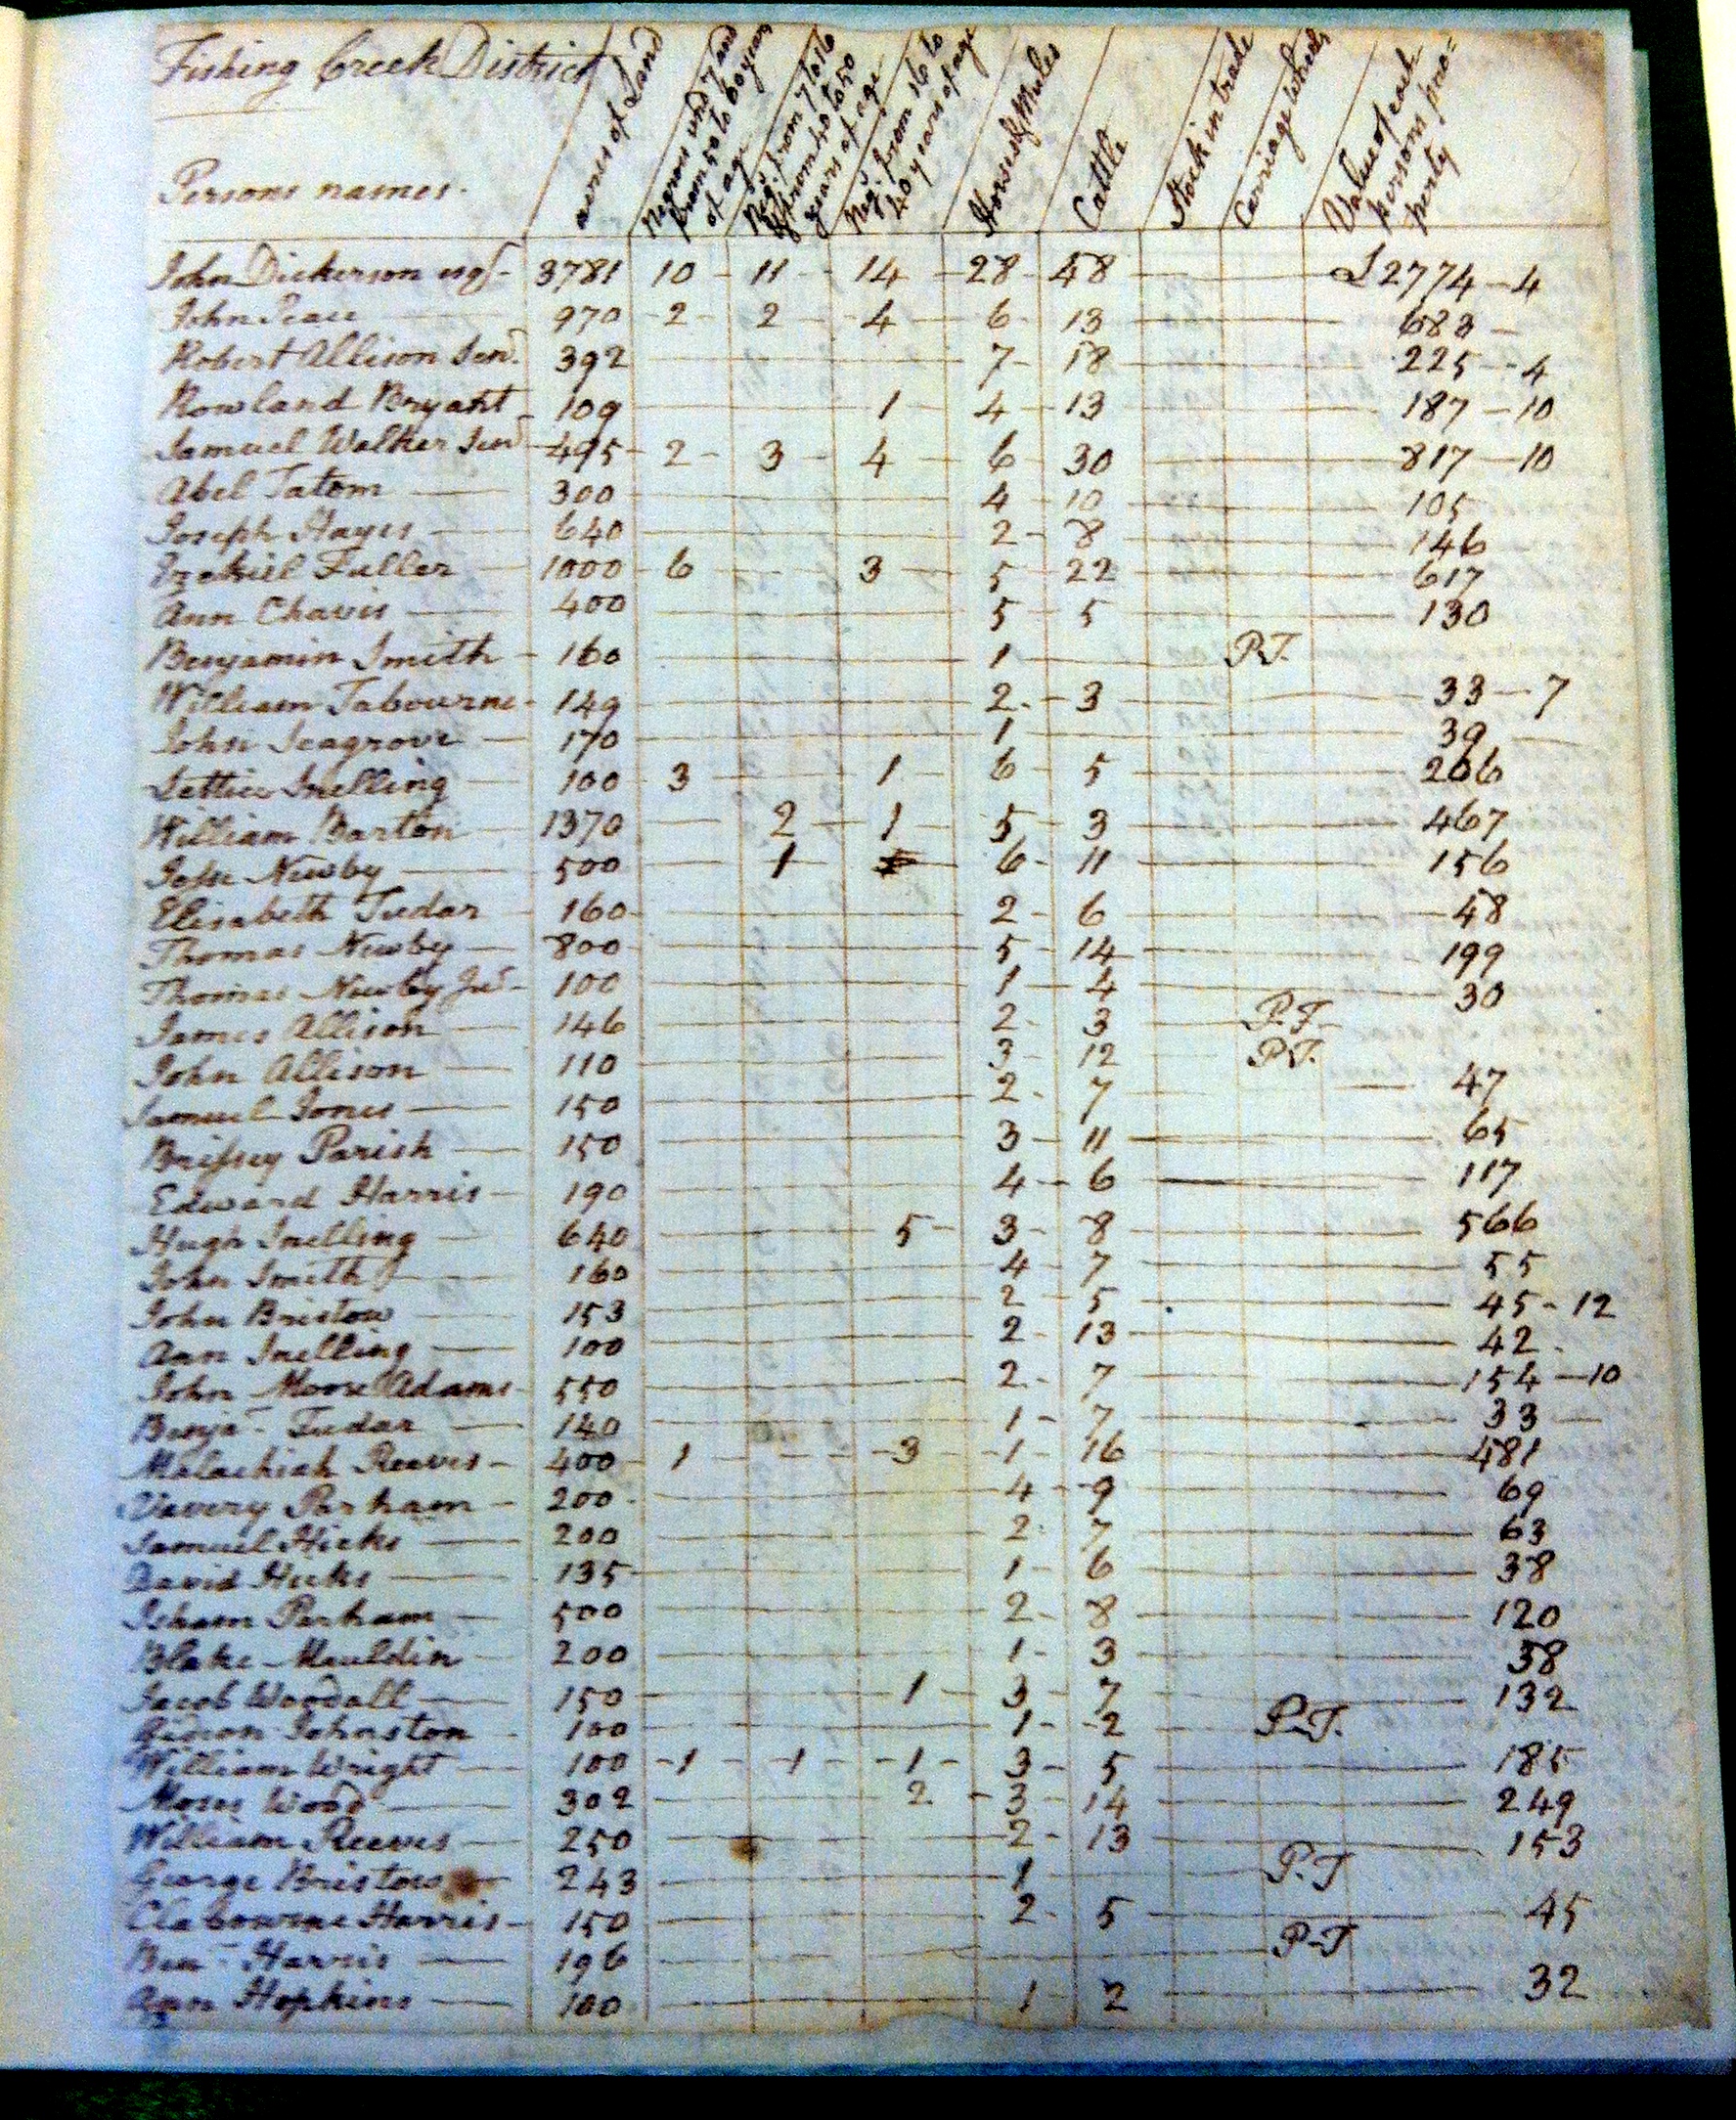 Fishing Creek District
Persons names.
acres of Land
Negroes und. 7 and from 50 to 60 years of age
Neg. from 7 to 16 & from 40 to 50 years of age
Neg. from 16 to 40 years of age
Horses & Mules
Cattle
Stock in trade
Carriage Wheels
Value of each persons pro= perty
John Dickerson esqr - 3781 10 - 11 - 14 - 28 - 48 £2774 - 4
John Peace 970 - 2 - 2 - 4 - 6 - 13 683 -
Robert Allison Senr. 392 7 - 18 225 - 4
Rowland Bryant - 109 1 - 4 - 13 187 - 10
Samuel Walker Senr - 495 - 2 - 3 - 4 - 6 - 30 817 - 10
Abel Tatom 300 4 - 10 105
Joseph Hayes 640 2 - 8 146
Ezekiel Fuller 1000 - 6 3 - 5 - 22 617
Ann Chavis 400 5 - 5 130
Benjamin Smith - 160 1 P.T.
William Tabourne - 149 2 - 3 33 - 7
John Seagrove 170 1 39
Lettice Snelling 100 - 3 1 - 6 - 5 206
William Barton 1370 2 - 1 - 5 - 3 467
Jesse Newby 500 1 6 - 11 156
Elisabeth Tudar 160 2 - 6 48
Thomas Newby 800 5 - 14 199
Thomas Newby Jur. - 100 1 - 4 30
James Allison 146 2 - 3 P.T.
John Allison 110 3 - 12 P.T.
Samuel Jones 150 2 - 7 47
Brissey Parish 150 3 - 11 65
Edward Harris - 190 4 - 6 117
Hugh Snelling 640 5 - 3 - 8 566
John Smith 160 4 - 7 55
John Bristow 153 2 - 5 45 - 12
Ann Snelling 100 2 - 13 42
John Moore Adams - 550 2 - 7 154 - 10
Benja. Tudar 140 1 - 7 33
Malachiah Reeves - 400 - 1 - 3 - 1 - 16 481
Davery Parham - 200 4 - 9 69
Samuel Hicks 200 2 - 7 63
David Hicks 135 1 - 6 38
Isham Parham 500 2 - 8 120
Blake Mauldin 200 1 - 3 38
Jacob Woodall 150 1 - 3 - 7 132
Johnston 100 1 - 2 P.T.
William Wright 100 - 1 - 1 - 1 - 3 - 5 185
Moses Wood 302 2 - 3 - 14 249
William Reeves 250 2 - 13 153
George Bristow 243 1 P.T
Clabourne Harris - 150 2 - 5 45
Ben. Harris 196 P-T
Ann Hopkins 100 1 2 32